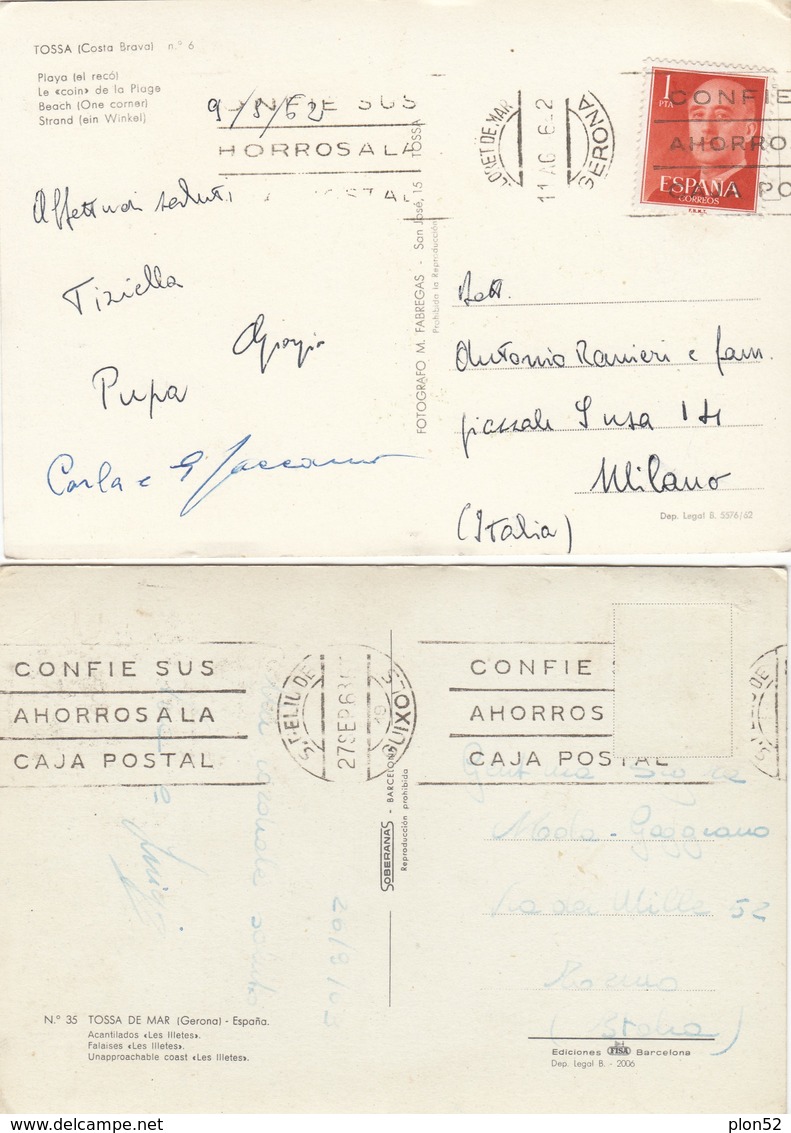 TOSSA (Costa Brava) n.º 6
Playa (el recó)
Le «coin» de la Plage
Beach (One corner)
Strand (ein Winkel)
9/8/62
NFIE SUS
HORROSALA
LLORET DE MAR
GERONA
11 AG 6 2
1
PTA
ESPAÑA
CORREOS
F.N.M.T.
CONFIE
AHORRO
CAJA PO
Affettuosi saluti
Tiziella
Giorgio
Pupa
Carla e G.
FOTOGRAFO M. FABREGAS - San José, 15 TOSSA
Prohibida la Reproducción
Dott.
Antonio Ranieri e fam.
piazzale Susa 14
Milano
(Italia)
Dep. Legal B. 5576/62
CONFIE SUS
AHORROSALA
CAJA POSTAL
S. FELIU DE
GUIXOLS
27 SEP 63
CONFIE
AHORROS
CAJA POSTAL
SOBERANAS - BARCELONA
Reproducción prohibida
Via dei Mille 52
(Italia)
Luigi
N.º 35 TOSSA DE MAR (Gerona) - España.
Acantilados «Les Illetes».
Falaises «Les Illetes».
Unapproachable coast «Les Illetes».
Ediciones FISA Barcelona
Dep. Legal B. - 2006
plon52